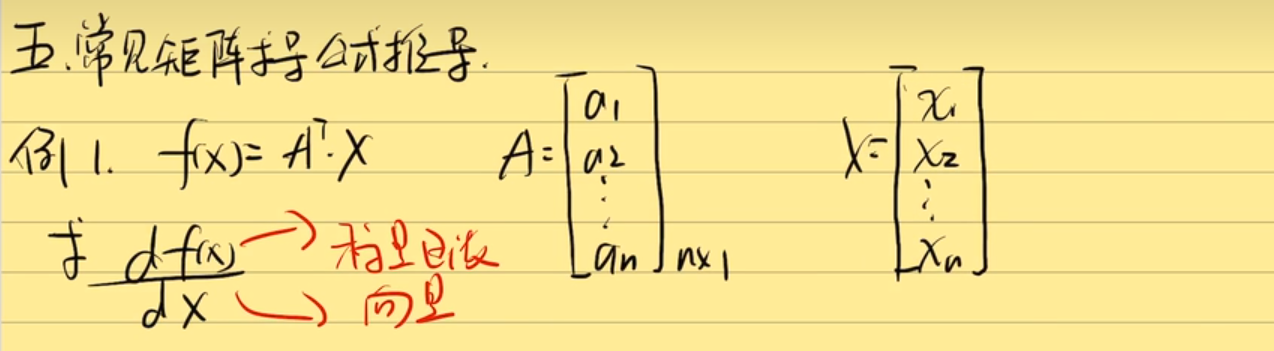 五.常见矩阵求导公式推导.
例1. f(x)=A^T·X A=[a1 a2 ⋮ an]n×1 X=[x1 x2 ⋮ xn]
求 df(x)/dX → 标量函数
→ 向量